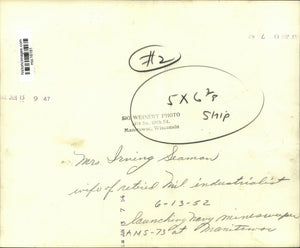 #2
5 X 6 2/3
Ship
SIG WEINERT PHOTO
Manitowoc, Wisconsin
Mrs. Irving Seaman
wife of retired Mil industrialist
6-13-52
launching Navy minesweeper
AMS-73 at Manitowoc